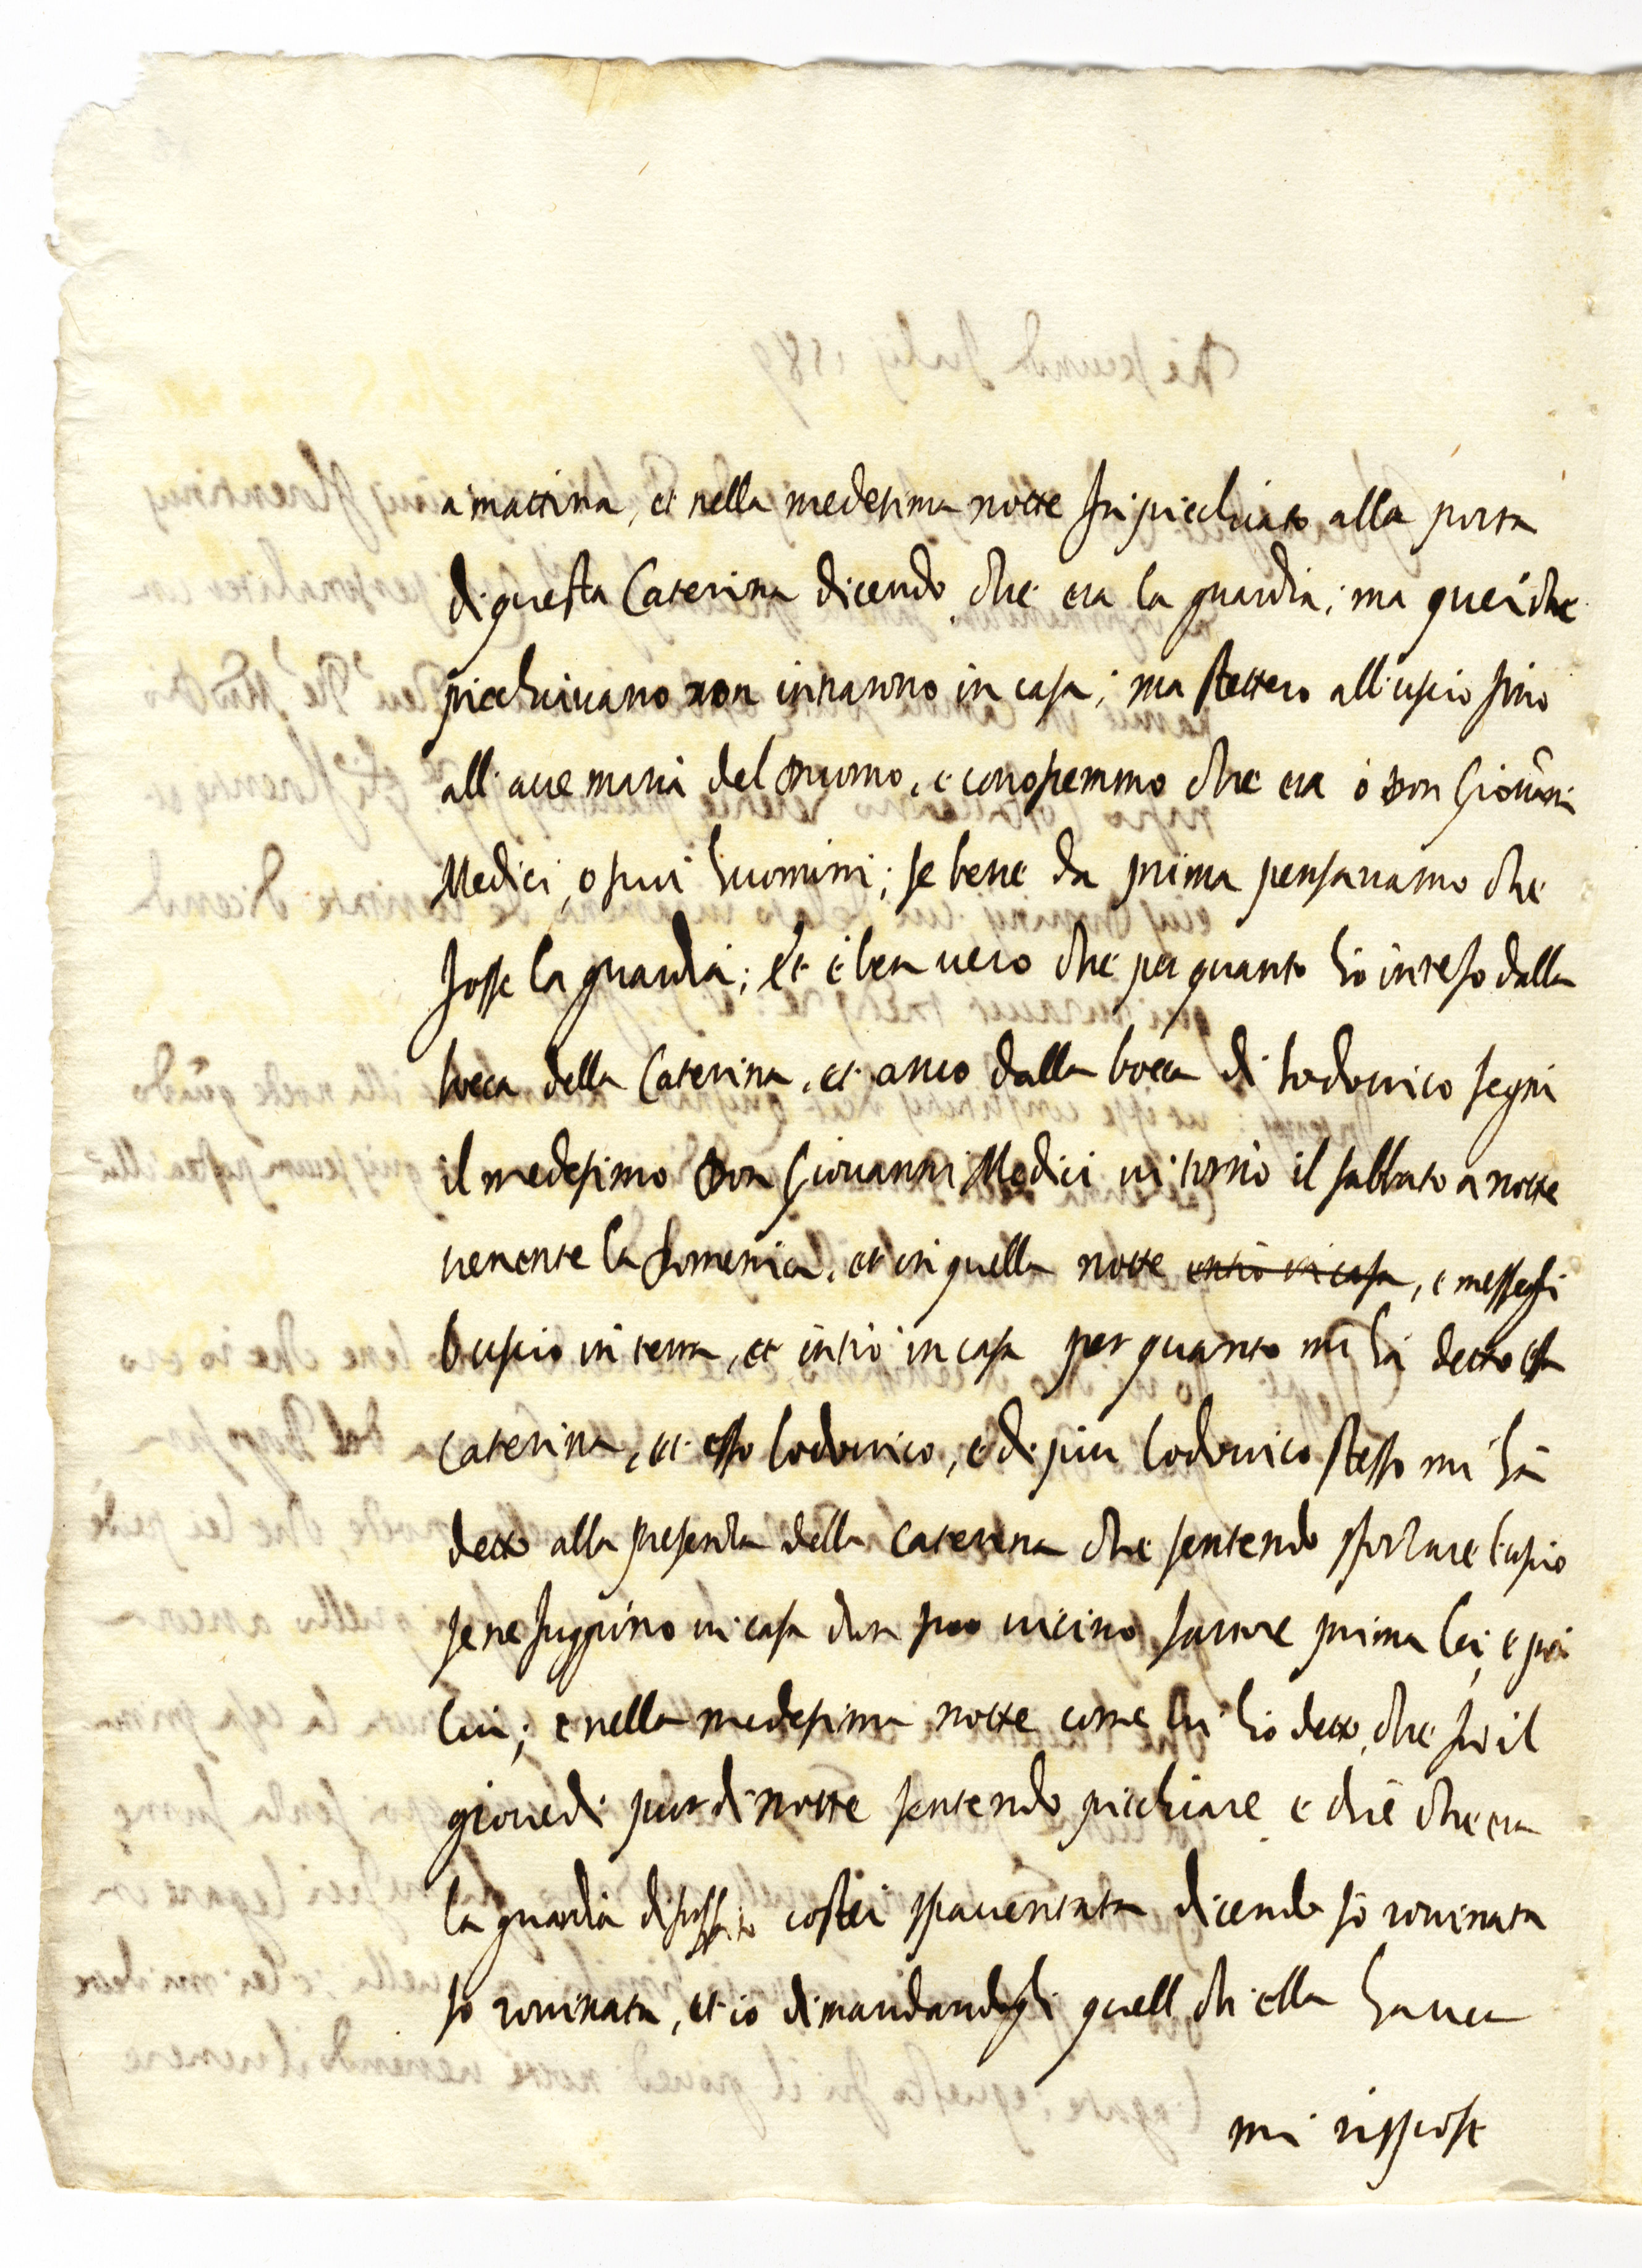 a mattina, et nella medesima notte fu picchiato alla porta
di questa Caterina dicendo che era la guardia; ma quei che
picchiavano non intrarono in casa; ma stettero all'uscio sino
all'ave maria del giorno, e conoscemmo che era o Don Giovanni
Medici, o sui huomini; se bene da prima pensavamo che
fosse la guardia; et è ben vero che per quanto hò inteso dalla
bocca della Caterina, et anco dalla bocca di Lodovico segni
il medesimo Don Giovanni Medici vi tornò il sabbato a notte
venente la domenica, et in quella notte entrò in casa, e messegli
l'uscio in terra, et intrò in casa per quanto mi hà detto essa
Caterina, et esso Lodovico, e di piu Lodovico stesso mi hà
detto alla presentia della Caterina che sentendo sforzare l'uscio
se ne fuggirno in casa d'un suo vicino sartore prima lei, e poi
lui; e nella medesima notte come li hò detto, che fu il
giovedi pur di notte sentendo picchiare e dire che era
la guardia costei spaventata dicendo sò rovinata
sò rovinata, et io dimandandogli quell ch'ella haveva
mi rispose